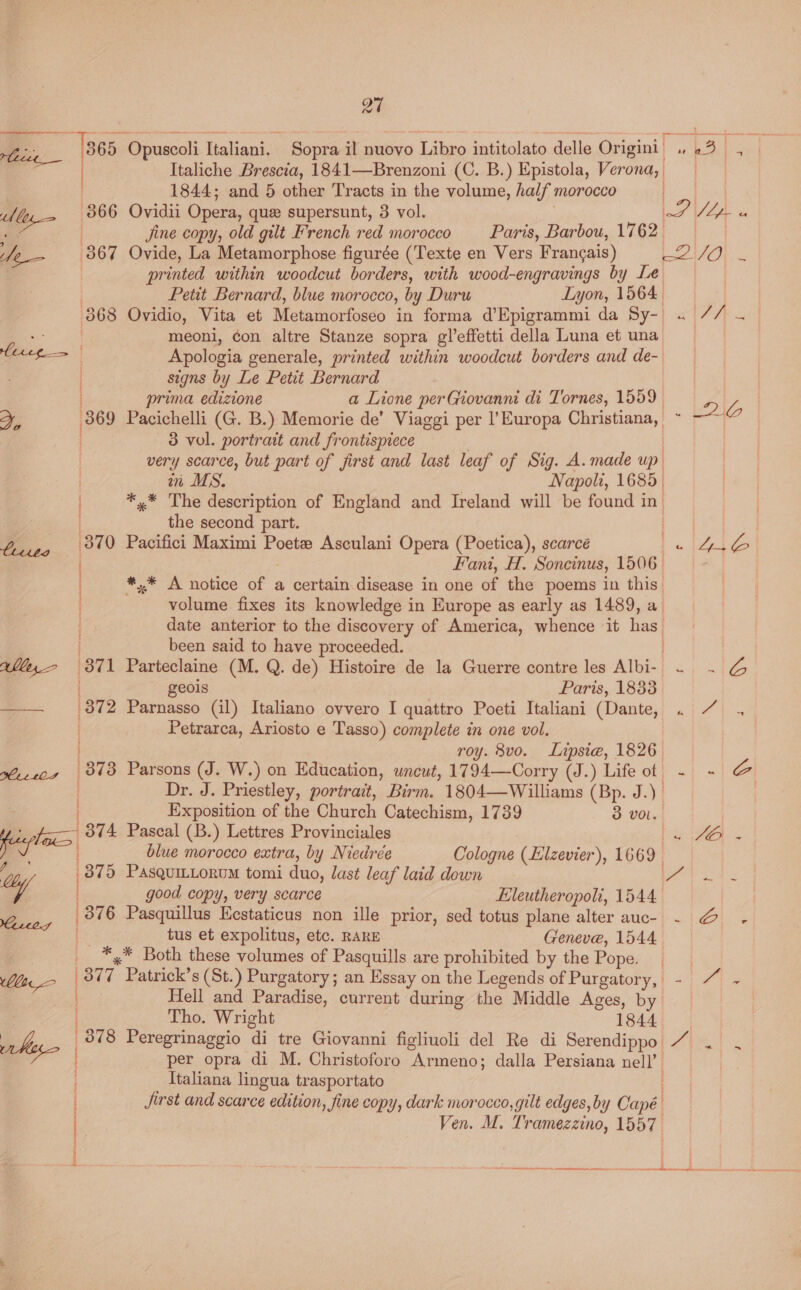 27
365 Opuscoli Italiani. Sopra il nuovo Libro intitolato delle Origini „ 3 „
Italiche Brescia, 1841—Brenzoni (C. B.) Epistola, Verona,
1844; and 5 other Tracts in the volume, half morocco
366 Ovidii Opera, quæ supersunt, 3 vol.
fine copy, old gilt French red morocco Paris, Barbou, 1762
367 Ovide, La Metamorphose figurée (Texte en Vers Français) 2 10 „
printed within woodcut borders, with wood-engravings by Le
Petit Bernard, blue morocco, by Duru Lyon, 1564
368 Ovidio, Vita et Metamorfoseo in forma d'Epigrammi da Sy- „ 11 „
meoni, con altre Stanze sopra gl'effetti della Luna et una
Apologia generale, printed within woodcut borders and de-
signs by Le Petit Bernard
prima edizione a Lione per Giovanni di Tornes, 1559
369 Pacichelli (G. B.) Memorie de' Viaggi per l'Europa Christiana, „ 2 6
3 vol. portrait and frontispiece
very scarce, but part of first and last leaf of Sig. A. made up
in MS. Napoli, 1685
*⁎* The description of England and Ireland will be found in
the second part.
370 Pacifici Maximi Poetæ Asculani Opera (Poetica), scarce „ 4 6
Fani, H. Soncinus, 1506
*⁎* A notice of a certain disease in one of the poems in this
volume fixes its knowledge in Europe as early as 1489, a
date anterior to the discovery of America, whence it has
been said to have proceeded.
371 Parteclaine (M. Q. de) Histoire de la Guerre contre les Albi- „ „ 6
geois Paris, 1833
372 Parnasso (il) Italiano ovvero I quattro Poeti Italiani (Dante, „ 1 „
Petrarca, Ariosto e Tasso) complete in one vol.
roy. 8vo. Lipsiæ, 1826
373 Parsons (J. W.) on Education, uncut, 1794—Corry (J.) Life of „ „ 6
Dr. J. Priestley, portrait, Birm. 1804—Williams (Bp. J.)
Exposition of the Church Catechism, 1739 3 vol.
374 Pascal (B.) Lettres Provinciales „ 16 „
blue morocco extra, by Niedrée Cologne (Elzevier), 1669
375 PASQUILLORUM tomi duo, last leaf laid down 1 „ „
good copy, very scarce Eleutheropoli, 1544
376 Pasquillus Ecstaticus non ille prior, sed totus plane alter auc- „ 6 „
tus et expolitus, etc. RARE Genevæ, 1544
*⁎* Both these volumes of Pasquills are prohibited by the Pope.
377 Patrick's (St.) Purgatory; an Essay on the Legends of Purgatory, „ 1 „
Hell and Paradise, current during the Middle Ages, by
Tho. Wright 1844
378 Peregrinaggio di tre Giovanni figliuoli del Re di Serendippo 1 „ „
per opra di M. Christoforo Armeno; dalla Persiana nell'
Italiana lingua trasportato
first and scarce edition, fine copy, dark morocco, gilt edges, by Capé
Ven. M. Tramezzino, 1557